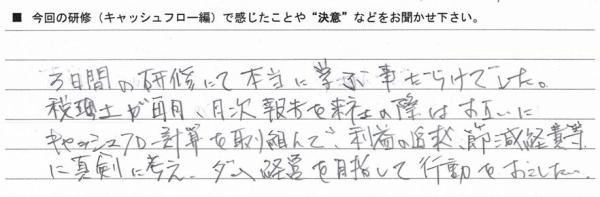 ■ 今回の研修（キャッシュフロー編）で感じたことや“決意”などをお聞かせ下さい。
3日間の研修にて本当に学ぶ事だらけでした。
税理士が毎月、月次報告を来社の際はお互いに
キャッシュフロー計算を取り組んで、利益の追求、節減経費等
に真剣に考え、ダム経営を目指して行動をおこしたい。